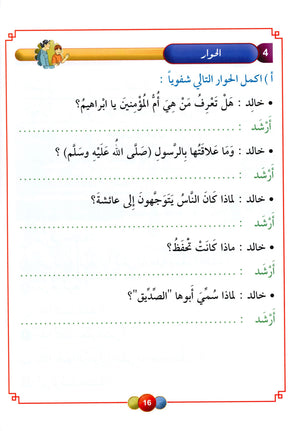 4 الحوار
أ ) اكمل الحوار التالي شفوياً :
• خالد : هَلْ تَعْرِفُ مَنْ هِيَ أُمُّ المُؤْمِنِينَ يا ابْراهيمُ؟
أَرْشَد : ........................................
• خالد : وَمَا عَلاقَتُها بِالرَّسولِ (صَلَّى اللهُ عَلَيْهِ وَسَلَّم) ؟
أَرْشَد : ........................................
• خالد : لماذا كَانَ النَّاسُ يَتَوَجَّهونَ إلى عائشةَ؟
أَرْشَد : ........................................
• خالد : ماذا كَانَتْ تَحْفَظُ؟
أَرْشَد : ........................................
• خالد : لماذا سُمِّيَ أَبوها "الصِّدِّيق"؟
أَرْشَد : ........................................
16